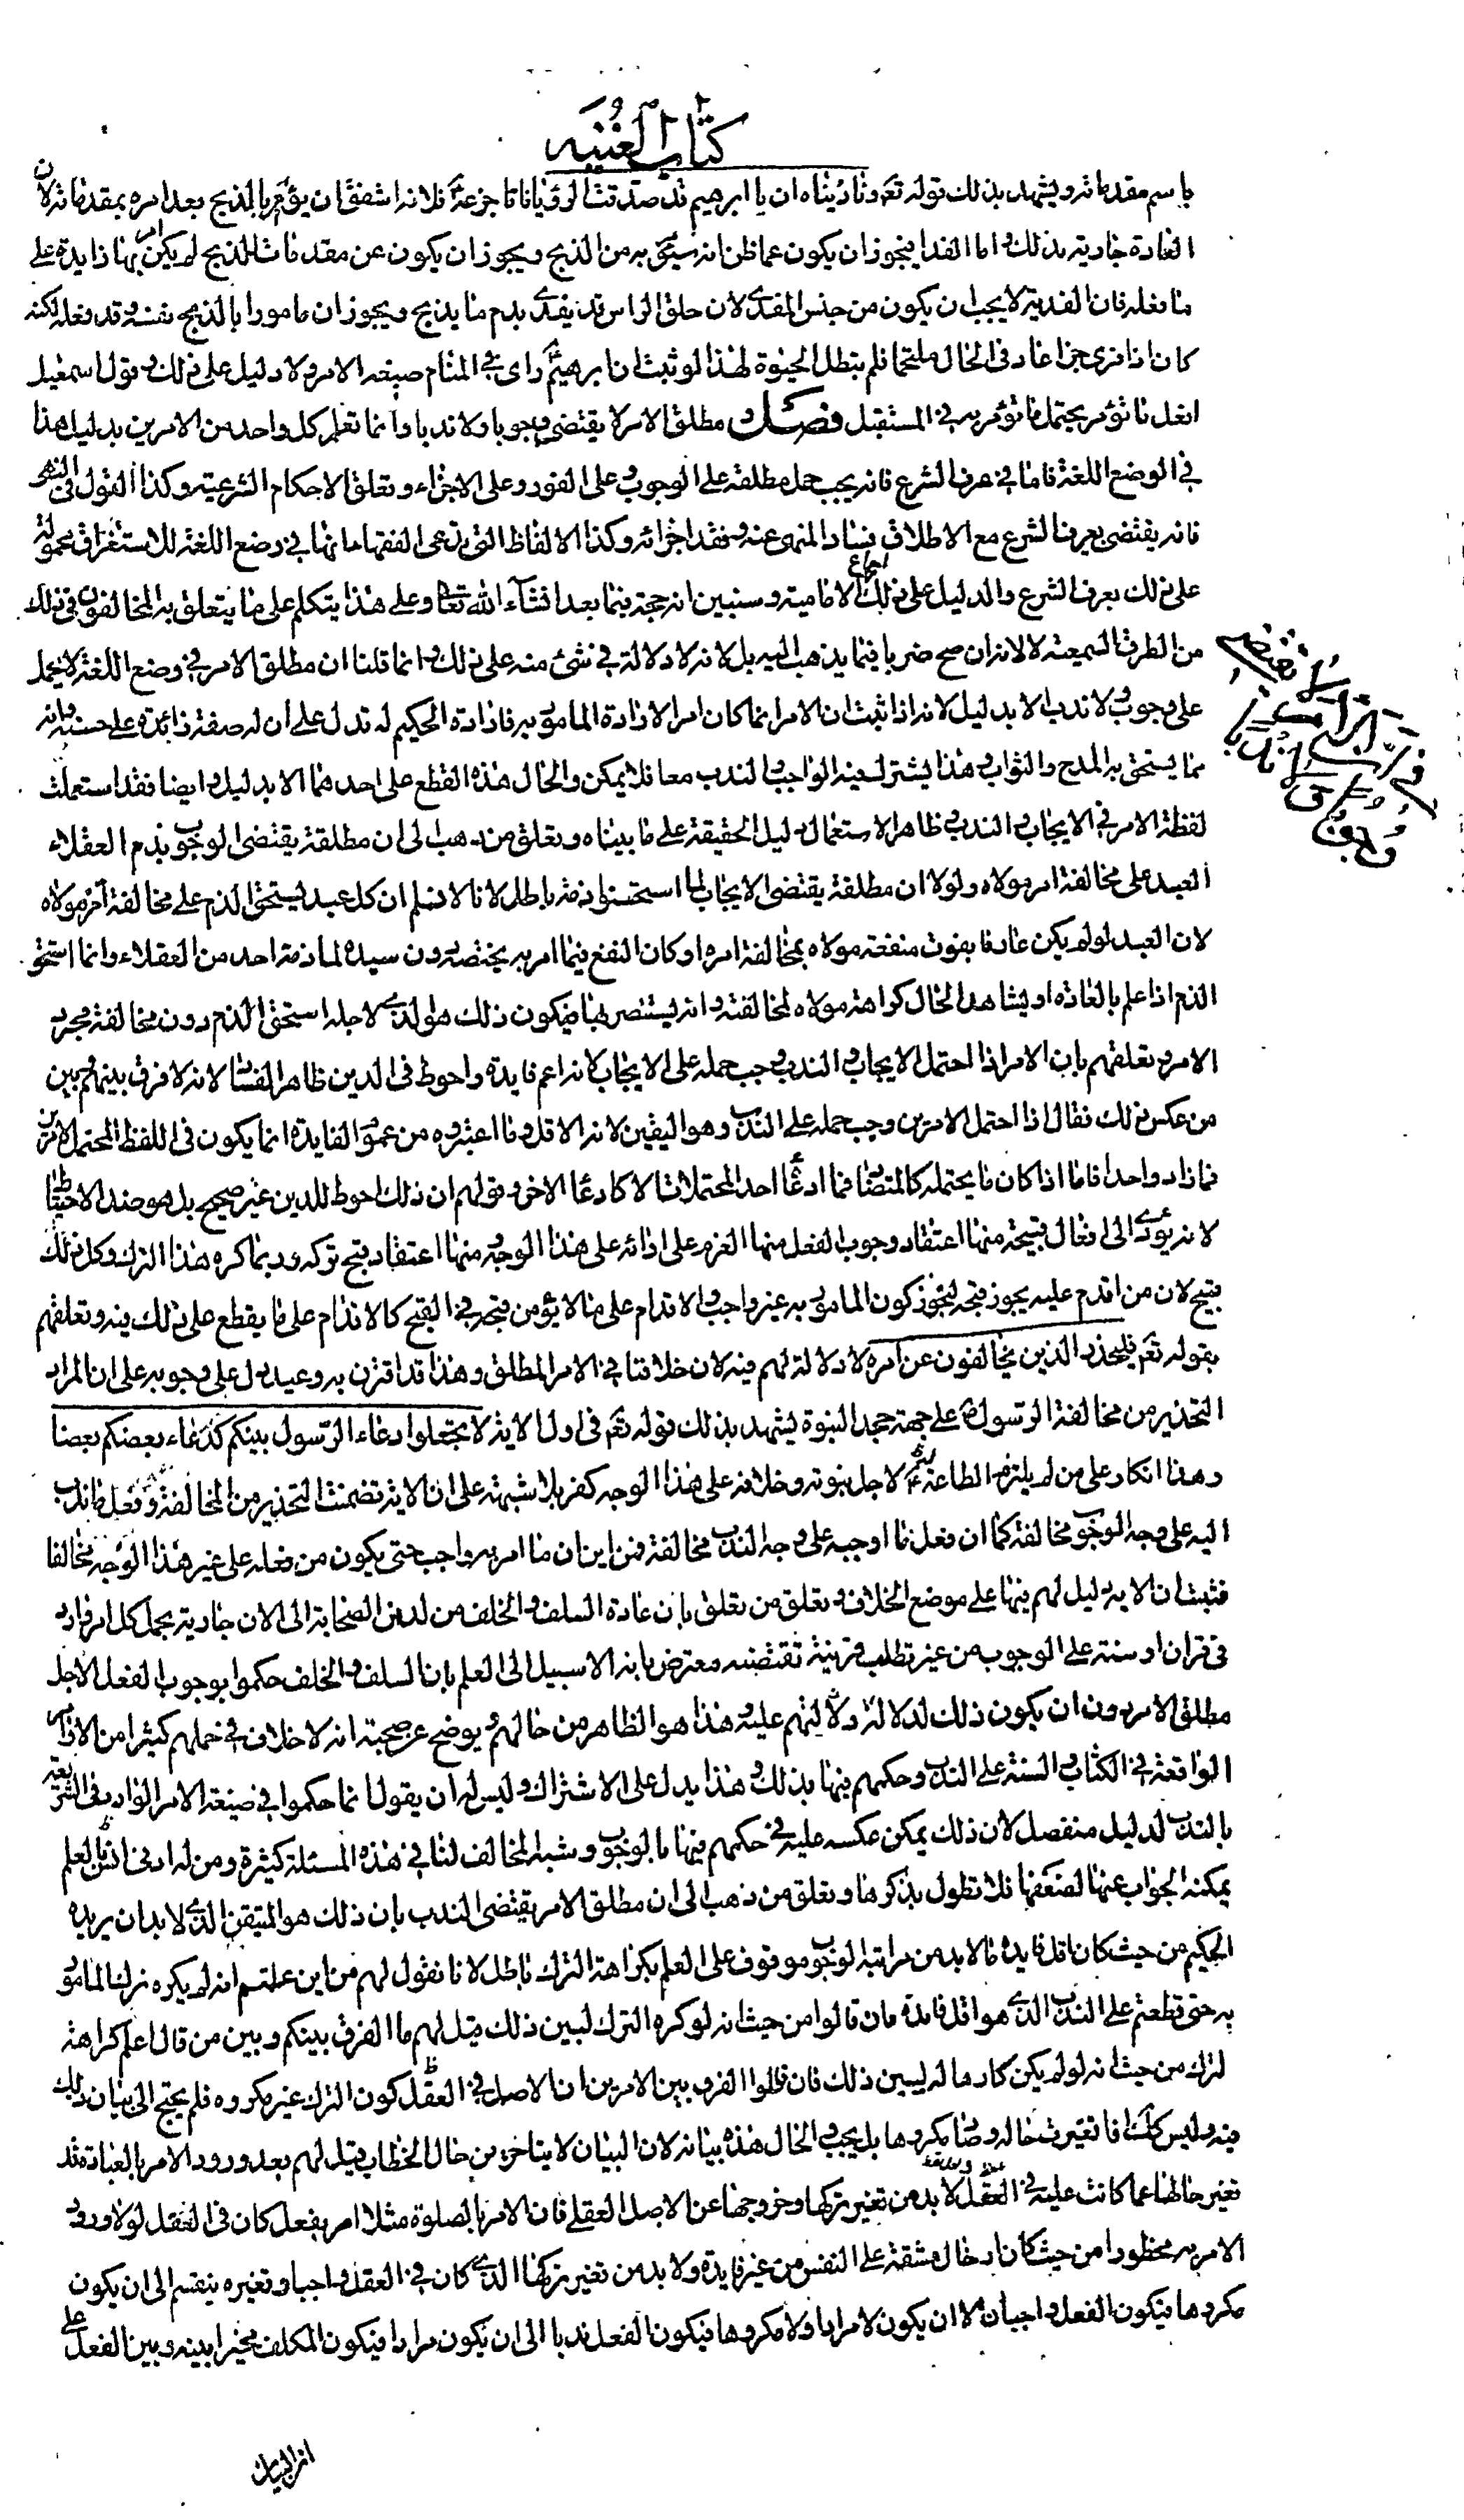 كتاب الغنيه
باسم مقدماته ويشهد بذلك قوله تع وناديناه ان يا ابرهيم قد صدقت الرؤيا فاما جزعه ع فلانه اشفق ان يؤمر بالذبح بعد امره بمقدماته لان
العادة جارية بذلك واما الفدا فيجوز ان يكون عما ظن انه سيؤمر به من الذبح ويجوز ان يكون عن مقدمات للذبح لم يكن امر بها زايدة على
ما فعله فان الفدية لا يجب ان يكون من جنس المفدى لان حلق الراس قد يفدى بدم ما يذبح ويجوز ان مامورا بالذبح نفسه وقد فعله لكنه
كان اذا فرى جزا عاد فى الحال ملتحما فلم يبطل الحيوة لهذا لو ثبت ان ابرهيم ع راى فى المنام صيغه الامر ولا دليل على ذلك وقول اسمعيل
افعل ما تؤمر يحتمل ما تؤمر به فى المستقبل فصل و مطلق الامر لا يقتضى وجوبا ولا ندبا وانما تعلم كل واحد من الامرين بدليل هذا
فى الوضع اللغة فاما فى عرف الشرع فانه يجب حمل مطلقه على الوجوب وعلى الفور وعلى الاجزاء وتعلق الاحكام الشرعية وكذا القول فى النهى
فانه يقتضى بعرف الشرع مع الاطلاق فساد المنهى عنه وفقد اجزائه وكذا الالفاظ التى يدعى الفقهاء انها فى وضع اللغة للاستغراق محمولة
على ذلك بعرف الشرع والدليل على ذلك اجماع الامامية وسنبين انه حجة فيما بعد انشآء الله تعالى وعلى هذا يتكلم على ما يتعلق به المخالفون فى ذلك
من الطرق السمعية لا لانه ان صح ضر بنا فيما يذهب اليه بل لانه لا دلالة فى شئ منه على ذلك وانما قلنا ان مطلق الامر فى وضع اللغة لا يحمل
على وجوب ولا ندب الا بدليل لانه اذا ثبت ان الامر انما كان امرا لارادة المامور به فارادة الحكيم له تدل على ان له صفة زائدة على حسنه وانه
مما يستحق به المدح والثواب وهذا يشترك فيه الواجب والندب معا فلا يمكن والحال هذه القطع على احدهما الا بدليل وايضا فقد استعملت
لفظة الامر فى الايجاب والندب وظاهر الاستعمال دليل الحقيقة على ما بيناه وتعلق من ذهب الى ان مطلقة يقتضى الوجوب بذم العقلاء
العبد على مخالفة امر مولاه ولولا ان مطلقة يقتضى الايجاب لما استحسنوا ذمه باطل لانا لا نسلم ان كل عبد يستحق الذم على مخالفة امر مولاه
لان العبد لو لم يكن عارفا بفوت منفعة مولاه بمخالفة امره او كان النفع فيما امر به يختصه دون سيده لما ذمه احد من العقلاء وانما استحق
الذم اذا علم بالعاده او ليشاهد الحال كراهة مولاه لمخالفته وانه يستضر بها فيكون ذلك هو الذى لاجله استحق الذم دون مخالفة مجرد
الامر وتعلقهم بان الامر اذا احتمل الايجاب والندب وجب حمله على الايجاب لانه اعم فايدة واحوط فى الدين ظاهر الفساد لانه لا فرق بينهم وبين
من عكس ذلك فقال اذا احتمل الامرين وجب حمله على الندب وهو اليقين لانه الاقل وما اعتبروه من عموم الفايدة انما يكون فى اللفظ المحتمل لامرين
فما زاد واحدا فاما اذا كان ما يحتمله كالمتضاد فما ادعا احد المحتملات الا كادعا الاخر وقولهم ان ذلك احوط للدين غير صحيح بل هو ضد الاحتياط
لانه يؤدى الى افعال قبيحة منها اعتقاد وجوب الفعل منها العزم على ادائه على هذا الوجه منها اعتقاد قبح تركه وربما كره هذا الترك وكل ذلك
قبيح لان من اقدم عليه يجوز قبحه لتجوز كون المامور به غير واجب والاقدام على ما لا يؤمن قبحه فى القبح كالاقدام على ما يقطع على ذلك فيه وتعلقهم
بقوله تع فليحذر الذين يخالفون عن امره لا دلالة لهم فيه لان خلافنا فى الامر المطلق وهذا قد اقترن به وعيد يدل على وجوبه على ان المراد
التحذير من مخالفة الرسول ص على جهة جحد النبوة يشهد بذلك قوله تع فى اول الاية لا تجعلوا دعاء الرسول بينكم كدعاء بعضكم بعضا
وهذا انكار على من لم يلتزم الطاعة له لاجل نبوته وخلافه على هذا الوجه كفر بلا شبهة على ان الاية تضمنت التحذير من المخالفة وفعل ما ندب
اليه على وجه الوجوب مخالفة كما ان فعل ما اوجبه على وجه الندب مخالفة فمن اين ان ما امر به واجب حتى يكون من فعله على غير هذا الوجه مخالفا
فثبت ان لا دليل لهم فيها على موضع الخلاف وتعلق من تعلق بان عادة السلف والخلف من لدن الصحابة الى الان جارية بحمل كل امر وارد
فى قران او سنة على الوجوب من غير تطلب قرينة تقتضيه معترض بانه لا سبيل الى العلم بان السلف والخلف حكموا بوجوب الفعل لاجل
مطلق الامر دون ان يكون ذلك لدلالة دلتهم عليه وهذا هو الظاهر من حالهم ويوضح عن صحته انه لا خلاف فى حملهم كثيرا من الاوامر
الواقعة فى الكتاب والسنة على الندب وحكمهم فيها بذلك وهذا يدل على الاشتراك وليس له ان يقول انما حكموا فى صيغة الامر الوارد فى الشريعة
بالندب لدليل منفصل لان ذلك يمكن عكسه عليه فى حكمهم فيها بالوجوب وشبه المخالف لنا فى هذه المسئلة كثيرة ومن له ادنى انس بالعلم
يمكنه الجواب عنها لضعفها فلا نطول بذكرها وتعلق من ذهب الى ان مطلق الامر يقتضى الندب بان ذلك هو المتيقن الذى لا بد ان يريده
الحكيم من حيث كان اقل فايدة ما لا بد من مراتبه الوجوب موقوف على العلم بكراهة الترك باطل لانا نقول لهم من اين علمتم انه لم يكره ترك المامور
به حتى قطعتم على الندب الذى هو اقل فائدة فان قالوا من حيث انه لو كره الترك لبين ذلك قيل لهم ما الفرق بينكم وبين من قال اعلم كراهة
لترك من حيث انه لو لم يكن كارها له لبين ذلك فان قالوا الفرق بين الامرين ان الاصل فى العقل كون الترك غير مكروه فلم يحتج الى بيان ذلك
فيه وليس كذلك اذا تغيرت حاله وصار مكروها بل يجب والحال هذه بيانه لان البيان لا يتاخر من حال الخطاب قيل لهم بعد ورود الامر بالعبادة قد
تغير حالها عما كانت عليه فى العقل لا بد من تغير تركها وخروجها عن الاصل العقلى فان الامر بالصلوة مثلا امر بفعل كان فى العقل لولا ورود
الامر به محظورا من حيث كان ادخال مشقة على النفس من غير فايدة ولا بد من تغير تركها الذى كان فى العقل واجبا وتغيره ينقسم الى ان يكون
مكروها فيكون الفعل واجبا والا ان يكون لا مرادا ولا مكروها فيكون الفعل ندبا الى ان يكون مرادا فيكون المكلف مخيرا بينه وبين الفعل على